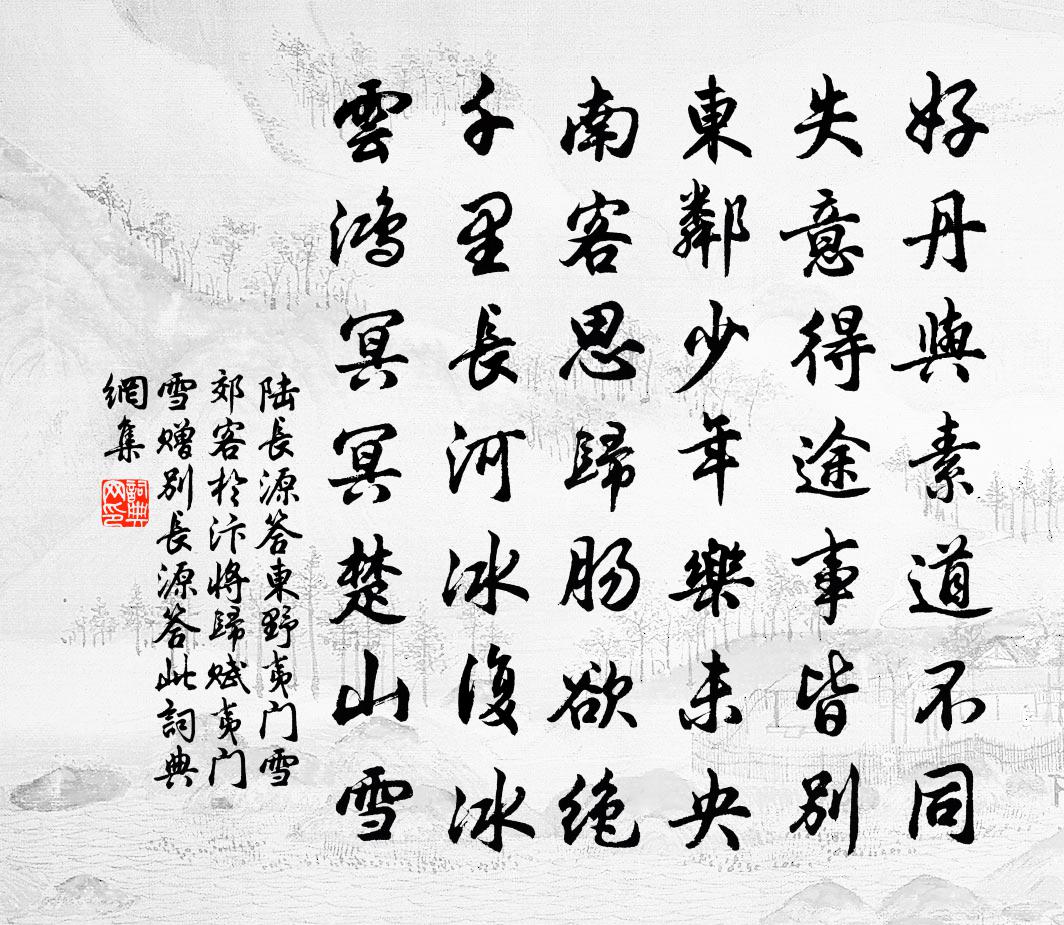 好丹與素道不同
失意得途事皆別
東鄰少年樂未央
南客思歸腸欲絶
千里長河冰復冰
雲鴻冥冥楚山雪
陆長源答東野夷门雪
郊客於汴將歸賦夷门
雪赠别長源答此詞典
網集
詞典网印